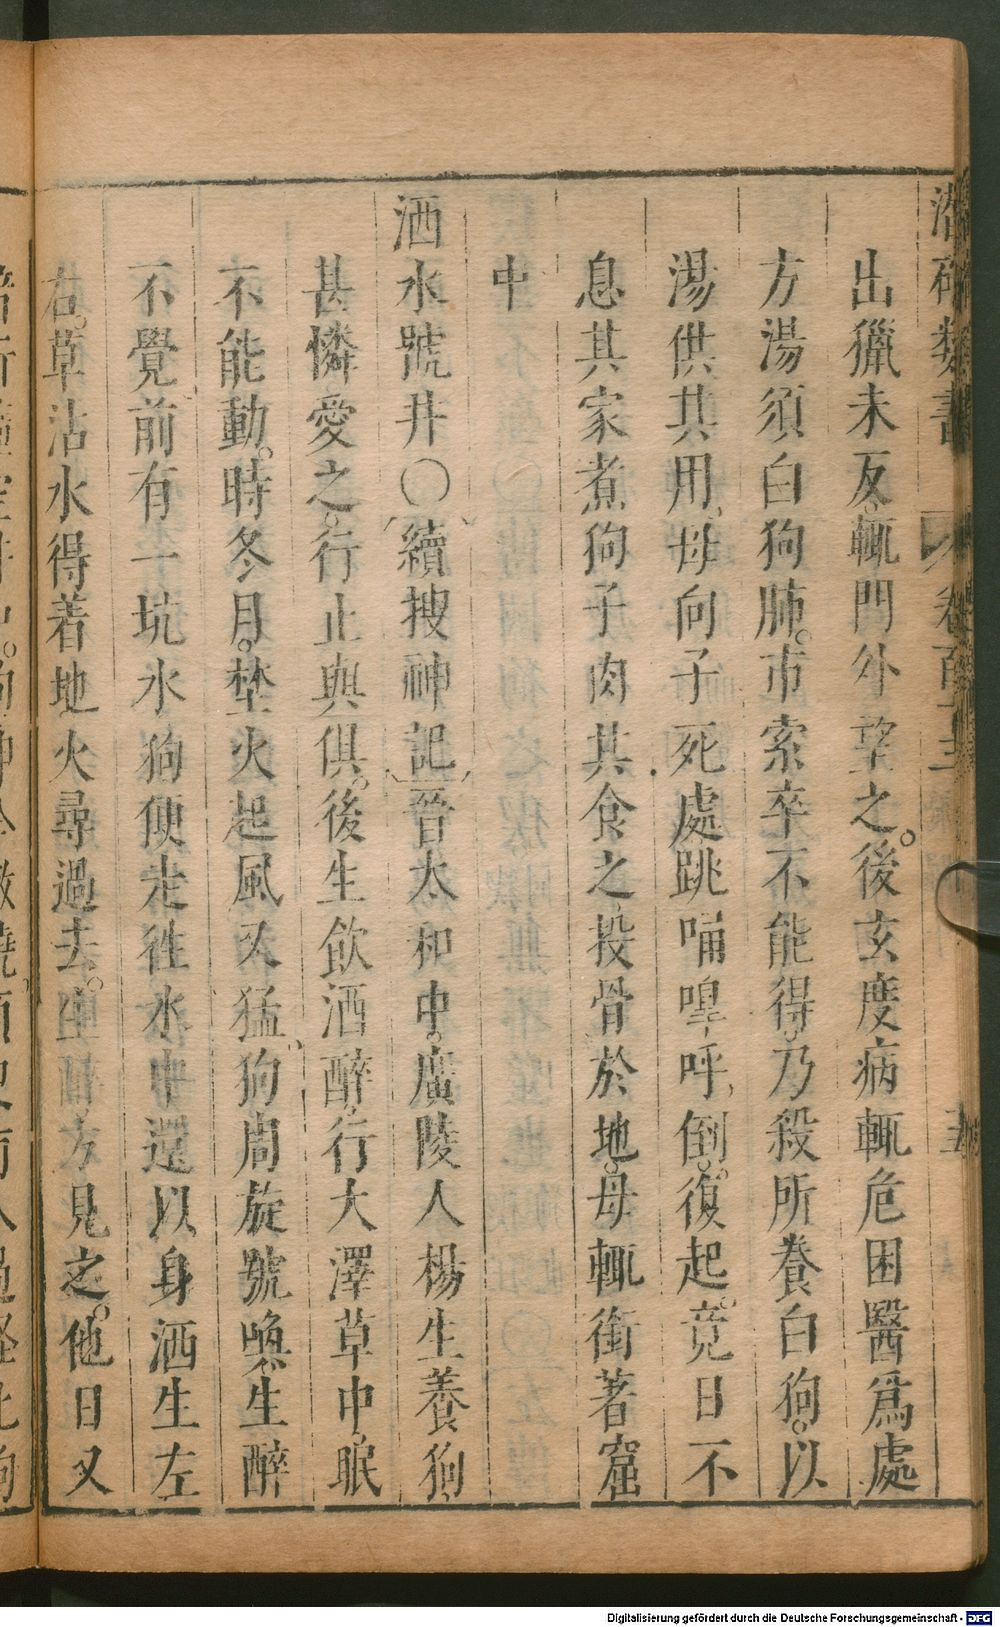 潛確類書 卷百十二 五
出獵未反。輒門外望之。後玄度病輒危困醫爲處
方湯須白狗肺。市索卒不能得。乃殺所養白狗。以
湯供其用。母向子死處跳踊嘷呼。倒。復起。竟日不
息其家煮狗子肉其食之投骨於地。母輒銜著窟
中
洒水號井〇續搜神記晉太和中。廣陵人楊生養狗。
甚憐愛之。行止與俱。後生飲酒醉。行大澤草中眠
不能動。時冬月。埜火起風又猛。狗周旋號喚。生醉
不覺前有一坑水狗便走往水中還以身洒生左
右。草沾水得着地火尋過去。生醒方見之。他日又
Digitalisierung gefördert durch die Deutsche Forschungsgemeinschaft - DFG